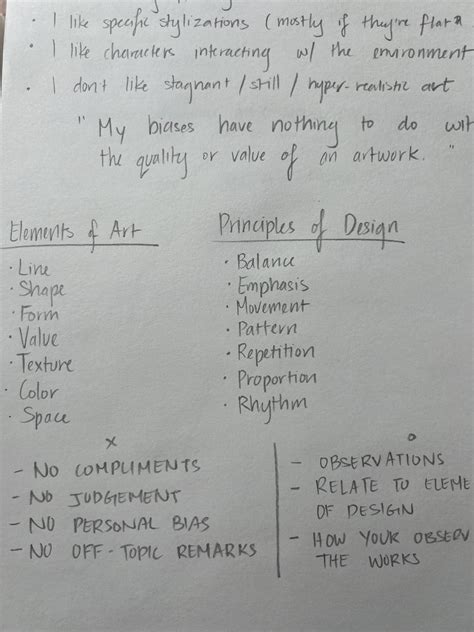 · I like specific stylizations (mostly if they're flat
· I like characters interacting w/ the environment
· I don't like stagnant / still / hyper-realistic art
"My biases have nothing to do wit
the quality or value of an artwork."
Elements of Art
· Line
· Shape
· Form
· Value
· Texture
· Color
· Space
Principles of Design
· Balance
· Emphasis
· Movement
· Pattern
· Repetition
· Proportion
· Rhythm
x
- NO COMPLIMENTS
- NO JUDGEMENT
- NO PERSONAL BIAS
- NO OFF-TOPIC REMARKS
o
- OBSERVATIONS
- RELATE TO ELEME
OF DESIGN
- HOW YOUR OBSERV
THE WORKS